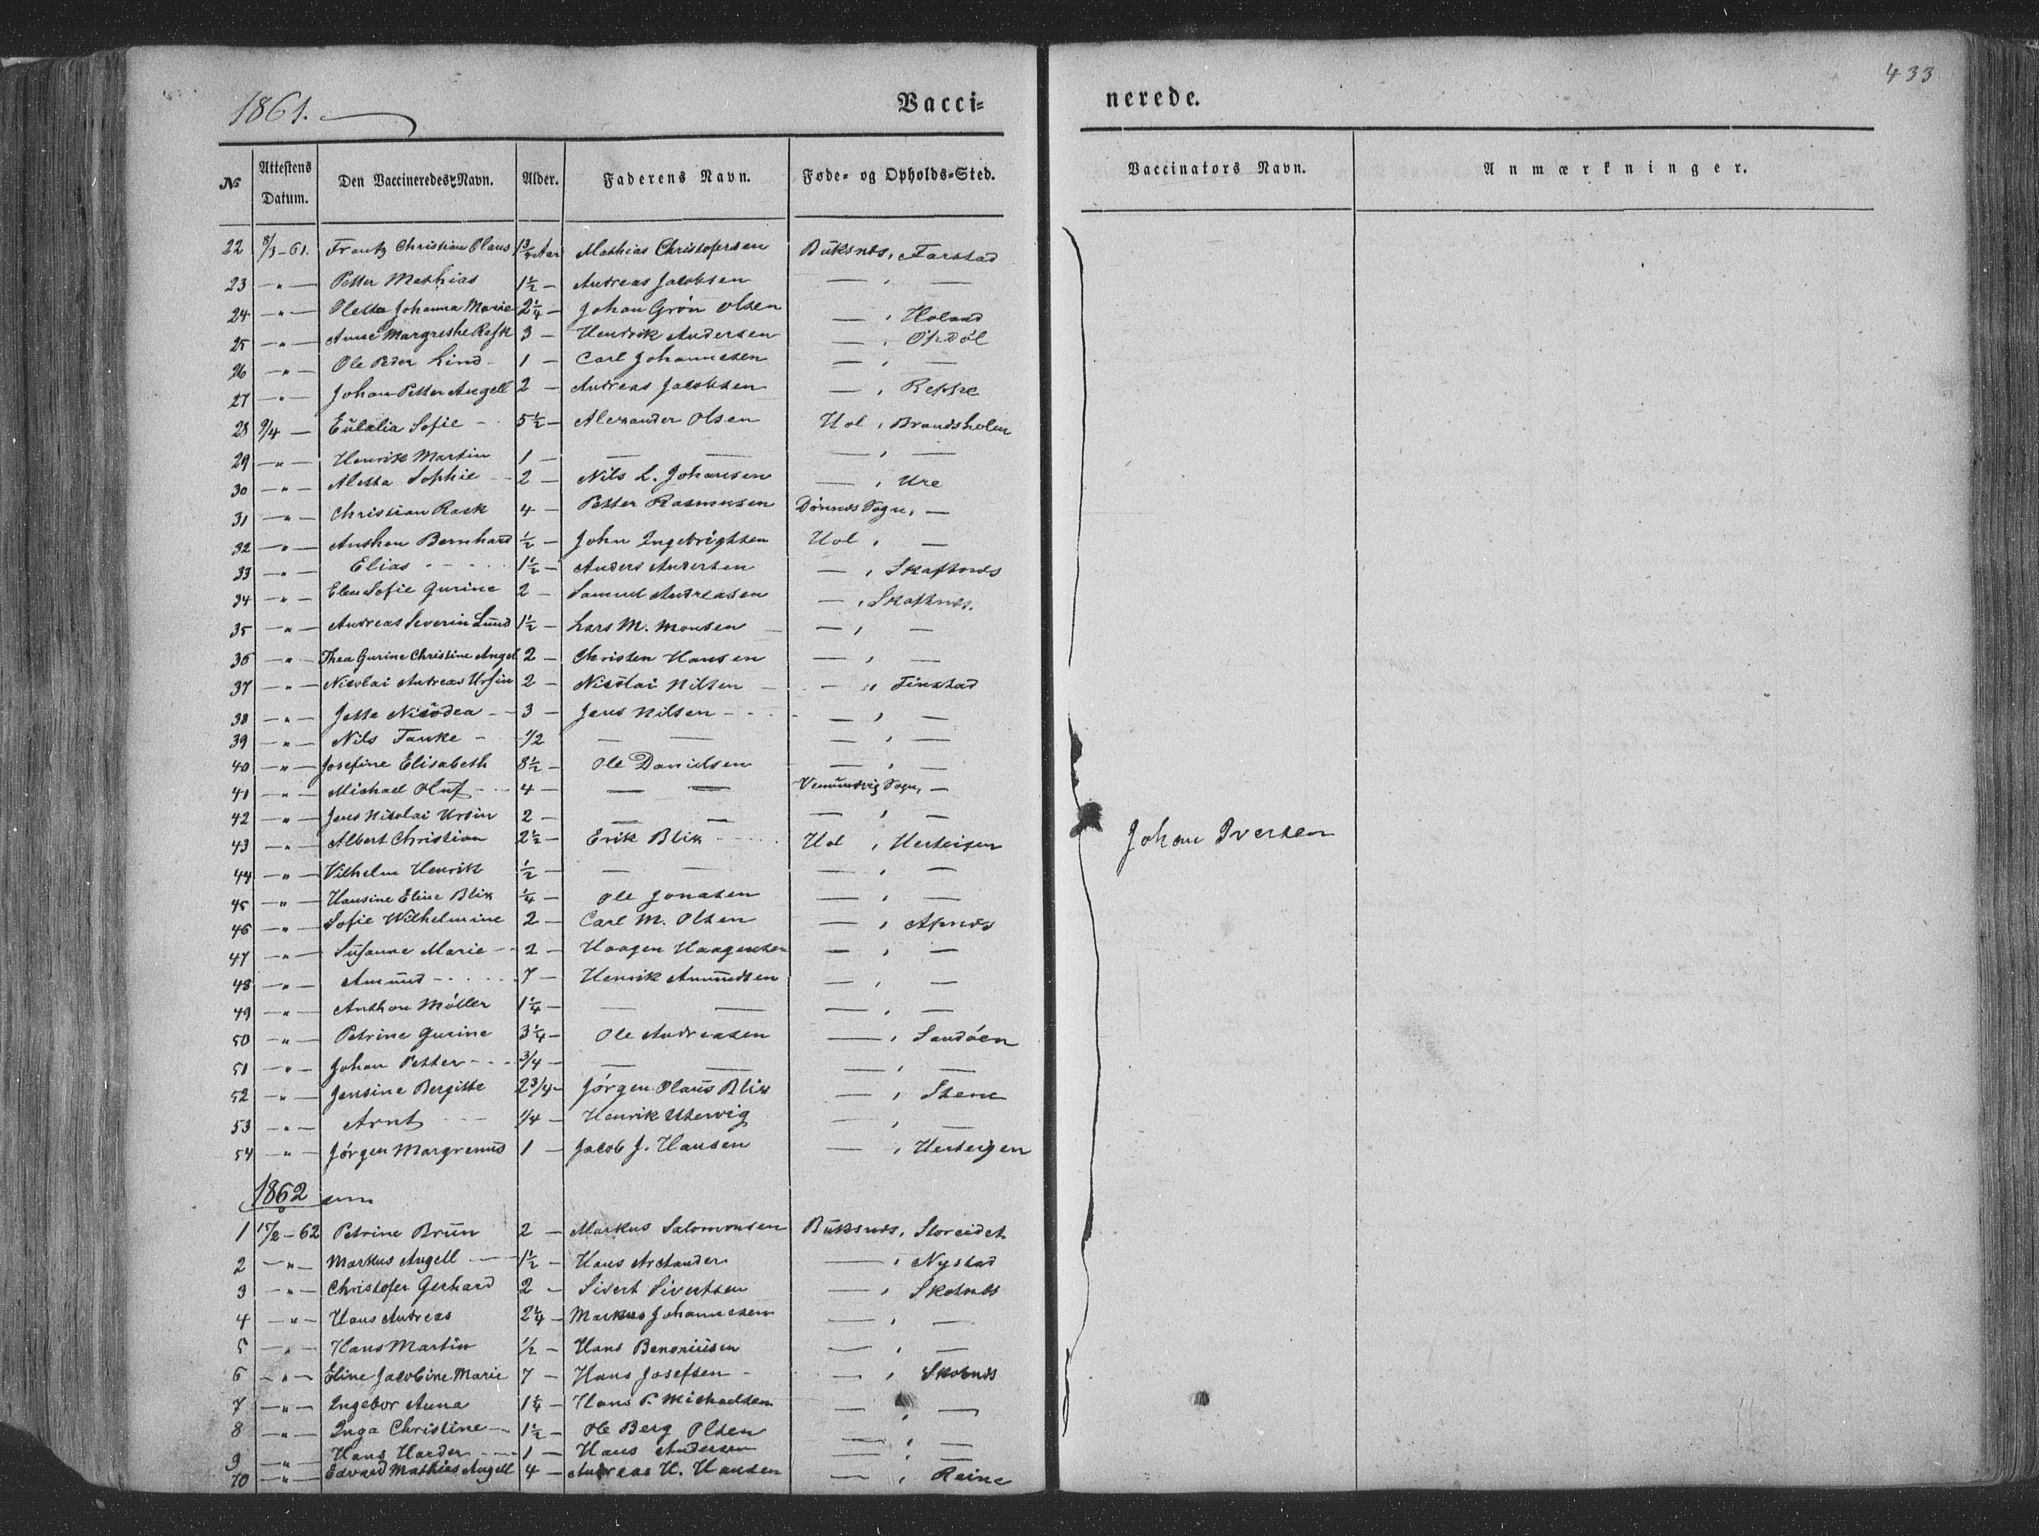 433
1861.
Vacci=
nerede.
№ Attestens Datum. Den Vaccineredes Navn. Alder. Faderens Navn. Føde- og Opholds-Sted. Vaccinators Navn. Anmærkninger.
22 8/3-61. Frantz Christian Olaus 1 3/4 Aar Mathias Christofersen Buksnes, Farstad
23 —„— Petter Mathias 1 1/2 — Andreas Jacobsen — , —
24 —„— Oletta Johanna Marie 2 1/4 — Johan Grön Olsen — , Holand
25 —„— Anne Margrethe 3 — Henrik Andersen — , Opdöl
26 —„— Ole Peder Lind 1 — Carl Johannesen — , —
27 —„— Johan Petter Angell 2 — Andreas Jacobsen — , Reppe
28 9/4 — Eulalia Sofie 5 1/2 — Alexander Olsen Hol , Brandsholm
29 —„— Henrik Martin 1 — — — — , —
30 —„— Aletta Sophie 2 — Nils L. Johansen — , Ure
31 —„— Christian Rask 4 — Petter Rasmusen Dönnes Sogn, —
32 —„— Anthon Bernhard 1/2 — John Ingebrigtsen Hol , —
33 —„— Elias 1 1/2 — Anders Andersen — , Skaftnes
34 —„— Elen Sofie Gurine 2 — Samuel Andreasen — , Skaftnes.
35 —„— Andreas Severin Lund 1 1/2 — Lars M. Monsen — , —
36 —„— Thea Gurine Christine Angel 2 — Christen Hansen — , —
37 —„— Nicolai Andreas Ursin 2 — Nicolai Nilsen — „ Finstad
38 —„— Jette Nicodea 3 — Jens Nilsen — , —
39 —„— Nils Fanke 1/2 — — — , —
40 —„— Josefine Elisabeth 8 1/2 — Ole Danielsen — , —
41 —„— Michael Oluf 4 — — — Vemundvig Sogn, —
42 —„— Jens Nicolai Ursin 2 — — — — , —
43 —„— Albert Christian 2 1/2 — Erik Blix Hol , Herteigen
44 —„— Vilhelm Henrik 1/2 — — — — , —
45 —„— Hansine Eline Blix 1/4 — Ole Jonasen — , —
46 —„— Sofie Wilhelmine 2 — Carl M. Olsen — , Apnes
47 —„— Susanne Marie 2 Haagen Haagensen — , —
48 —„— Amund 7 — Henrik Amundsen — , —
49 —„— Anthon Möller 1 1/4 — — — — , —
50 —„— Petrine Gurine 3 1/4 — Ole Andreasen — , Sandöen
51 —„— Johan Petter 3/4 — — — — , —
52 —„— Jensine Bergitte 2 3/4 — Jörgen Olaus Blix — , Stene
53 —„— Arnt 1/4 — Henrik Utervig — , —
54 —„— Jörgen Margrenus 1 — Jacob J. Hansen — , Herteigen
Johan Iversen
1862
1 15/2-62 Petrine Brun 2 — Markus Salomonsen Buksnes, Storeidet
2 —„— Markus Angell 1 1/2 — Hans Arctander — , Nystad
3 —„— Christofer Gerhard 2 — Sivert Sivertsen — , Skotnes
4 —„— Hans Andreas 2 1/4 — Markus Johannesen — , —
5 —„— Hans Martin 1/2 — Hans Benoniusen — , —
6 —„— Eline Jacobine Marie 7 — Hans Josefsen — , Skotnes
7 —„— Ingebor Anna 1 1/4 — Hans P. Michaelsen — , —
8 —„— Inga Christine 1 1/2 — Ole Berg Olsen — , —
9 —„— Hans Harder 1 — Hans Andersen — , —
10 —„— Edvard Mathias Angell 4 — Andreas H. Hansen — , Reine